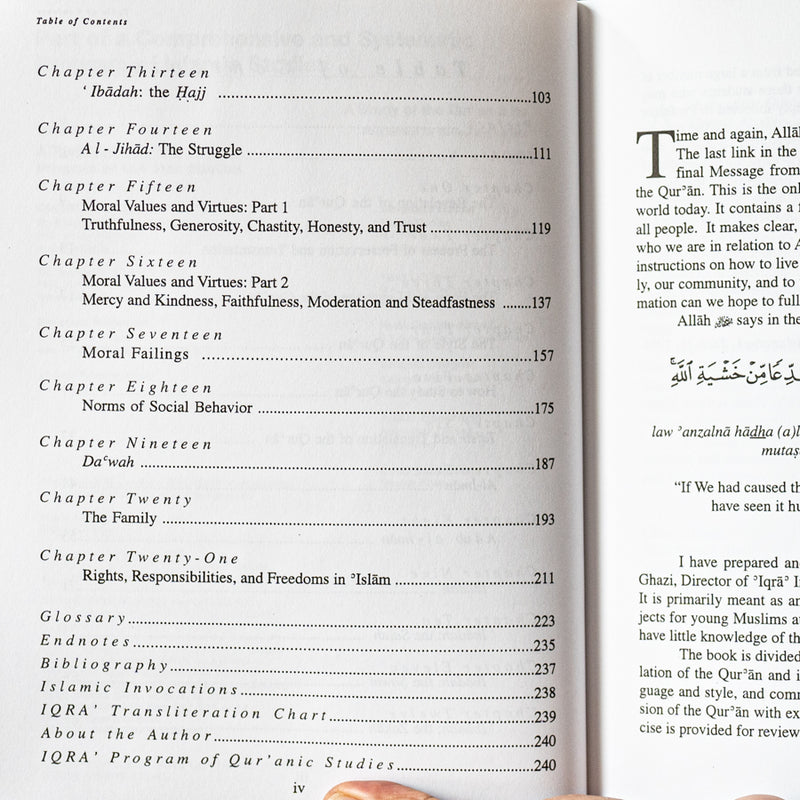 Table of Contents
Chapter Thirteen
ʻIbādah: the Ḥajj ........103
Chapter Fourteen
Al-Jihād: The Struggle ........111
Chapter Fifteen
Moral Values and Virtues: Part 1
Truthfulness, Generosity, Chastity, Honesty, and Trust ........119
Chapter Sixteen
Moral Values and Virtues: Part 2
Mercy and Kindness, Faithfulness, Moderation and Steadfastness ........137
Chapter Seventeen
Moral Failings ........157
Chapter Eighteen
Norms of Social Behavior ........175
Chapter Nineteen
Daʿwah ........187
Chapter Twenty
The Family ........193
Chapter Twenty-One
Rights, Responsibilities, and Freedoms in ʾIslām ........211
Glossary........223
Endnotes........235
Bibliography........237
Islamic Invocations........238
IQRA' Transliteration Chart........239
About the Author........240
IQRA' Program of Qur'anic Studies........240
iv
Time and again, Allā
The last link in the
final Message from
the Qurʾān. This is the onl
world today. It contains a
all people. It makes clear,
who we are in relation to A
instructions on how to live
ly, our community, and to
mation can we hope to full
Allāh ﷻ says in the
مِّنْ خَشْيَةِ ٱللَّهِ
law ʾanzalnā hādha (a)l
mutaṣ
“If We had caused th
have seen it hu
I have prepared an
Ghazi, Director of ʾIqrāʾ I
It is primarily meant as an
jects for young Muslims a
have little knowledge of th
The book is divided
lation of the Qurʾān and i
guage and style, and comm
sion of the Qurʾān with ex
cise is provided for review